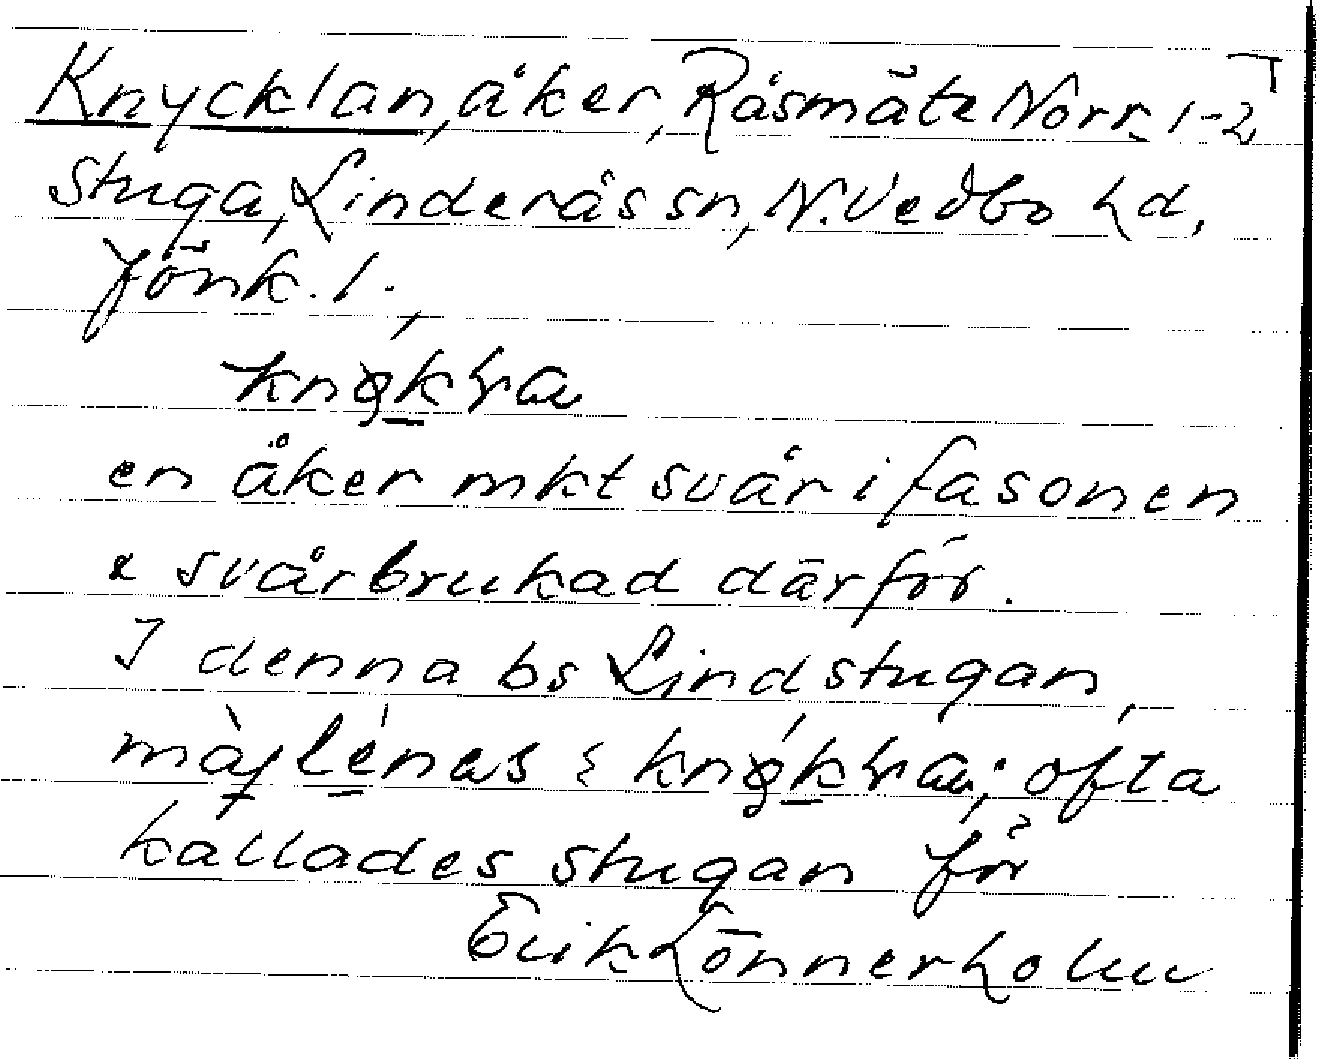 Knycklan, åker, Råsmäte Norr. 1-2
stuga, Linderås sn, N. Vedbo hd,
Jönk. l.,
en åker mkt svår i fasonen
& svårbrukad därför.
I denna bs Lindstugan,
ofta
kallades stugan för
Erik Lönnerholm